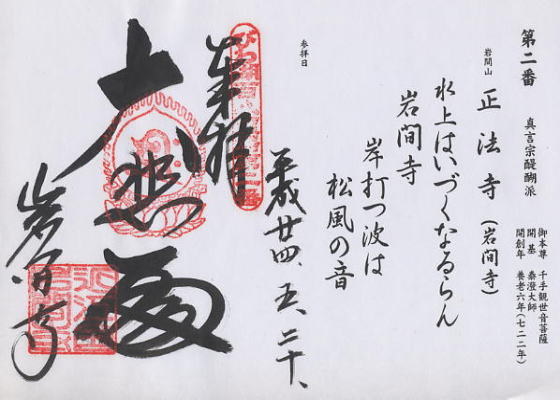 第二番
真言宗醍醐派
御本尊 千手観世音菩薩
開基 泰澄大師
開創年 養老六年(七二二年)
岩間山 正法寺(岩間寺)
水上はいづくなるらん
岩間寺
岸打つ波は
松風の音
参拝日
平成廿四、五、二十、
奉拝
大悲殿
岩間寺